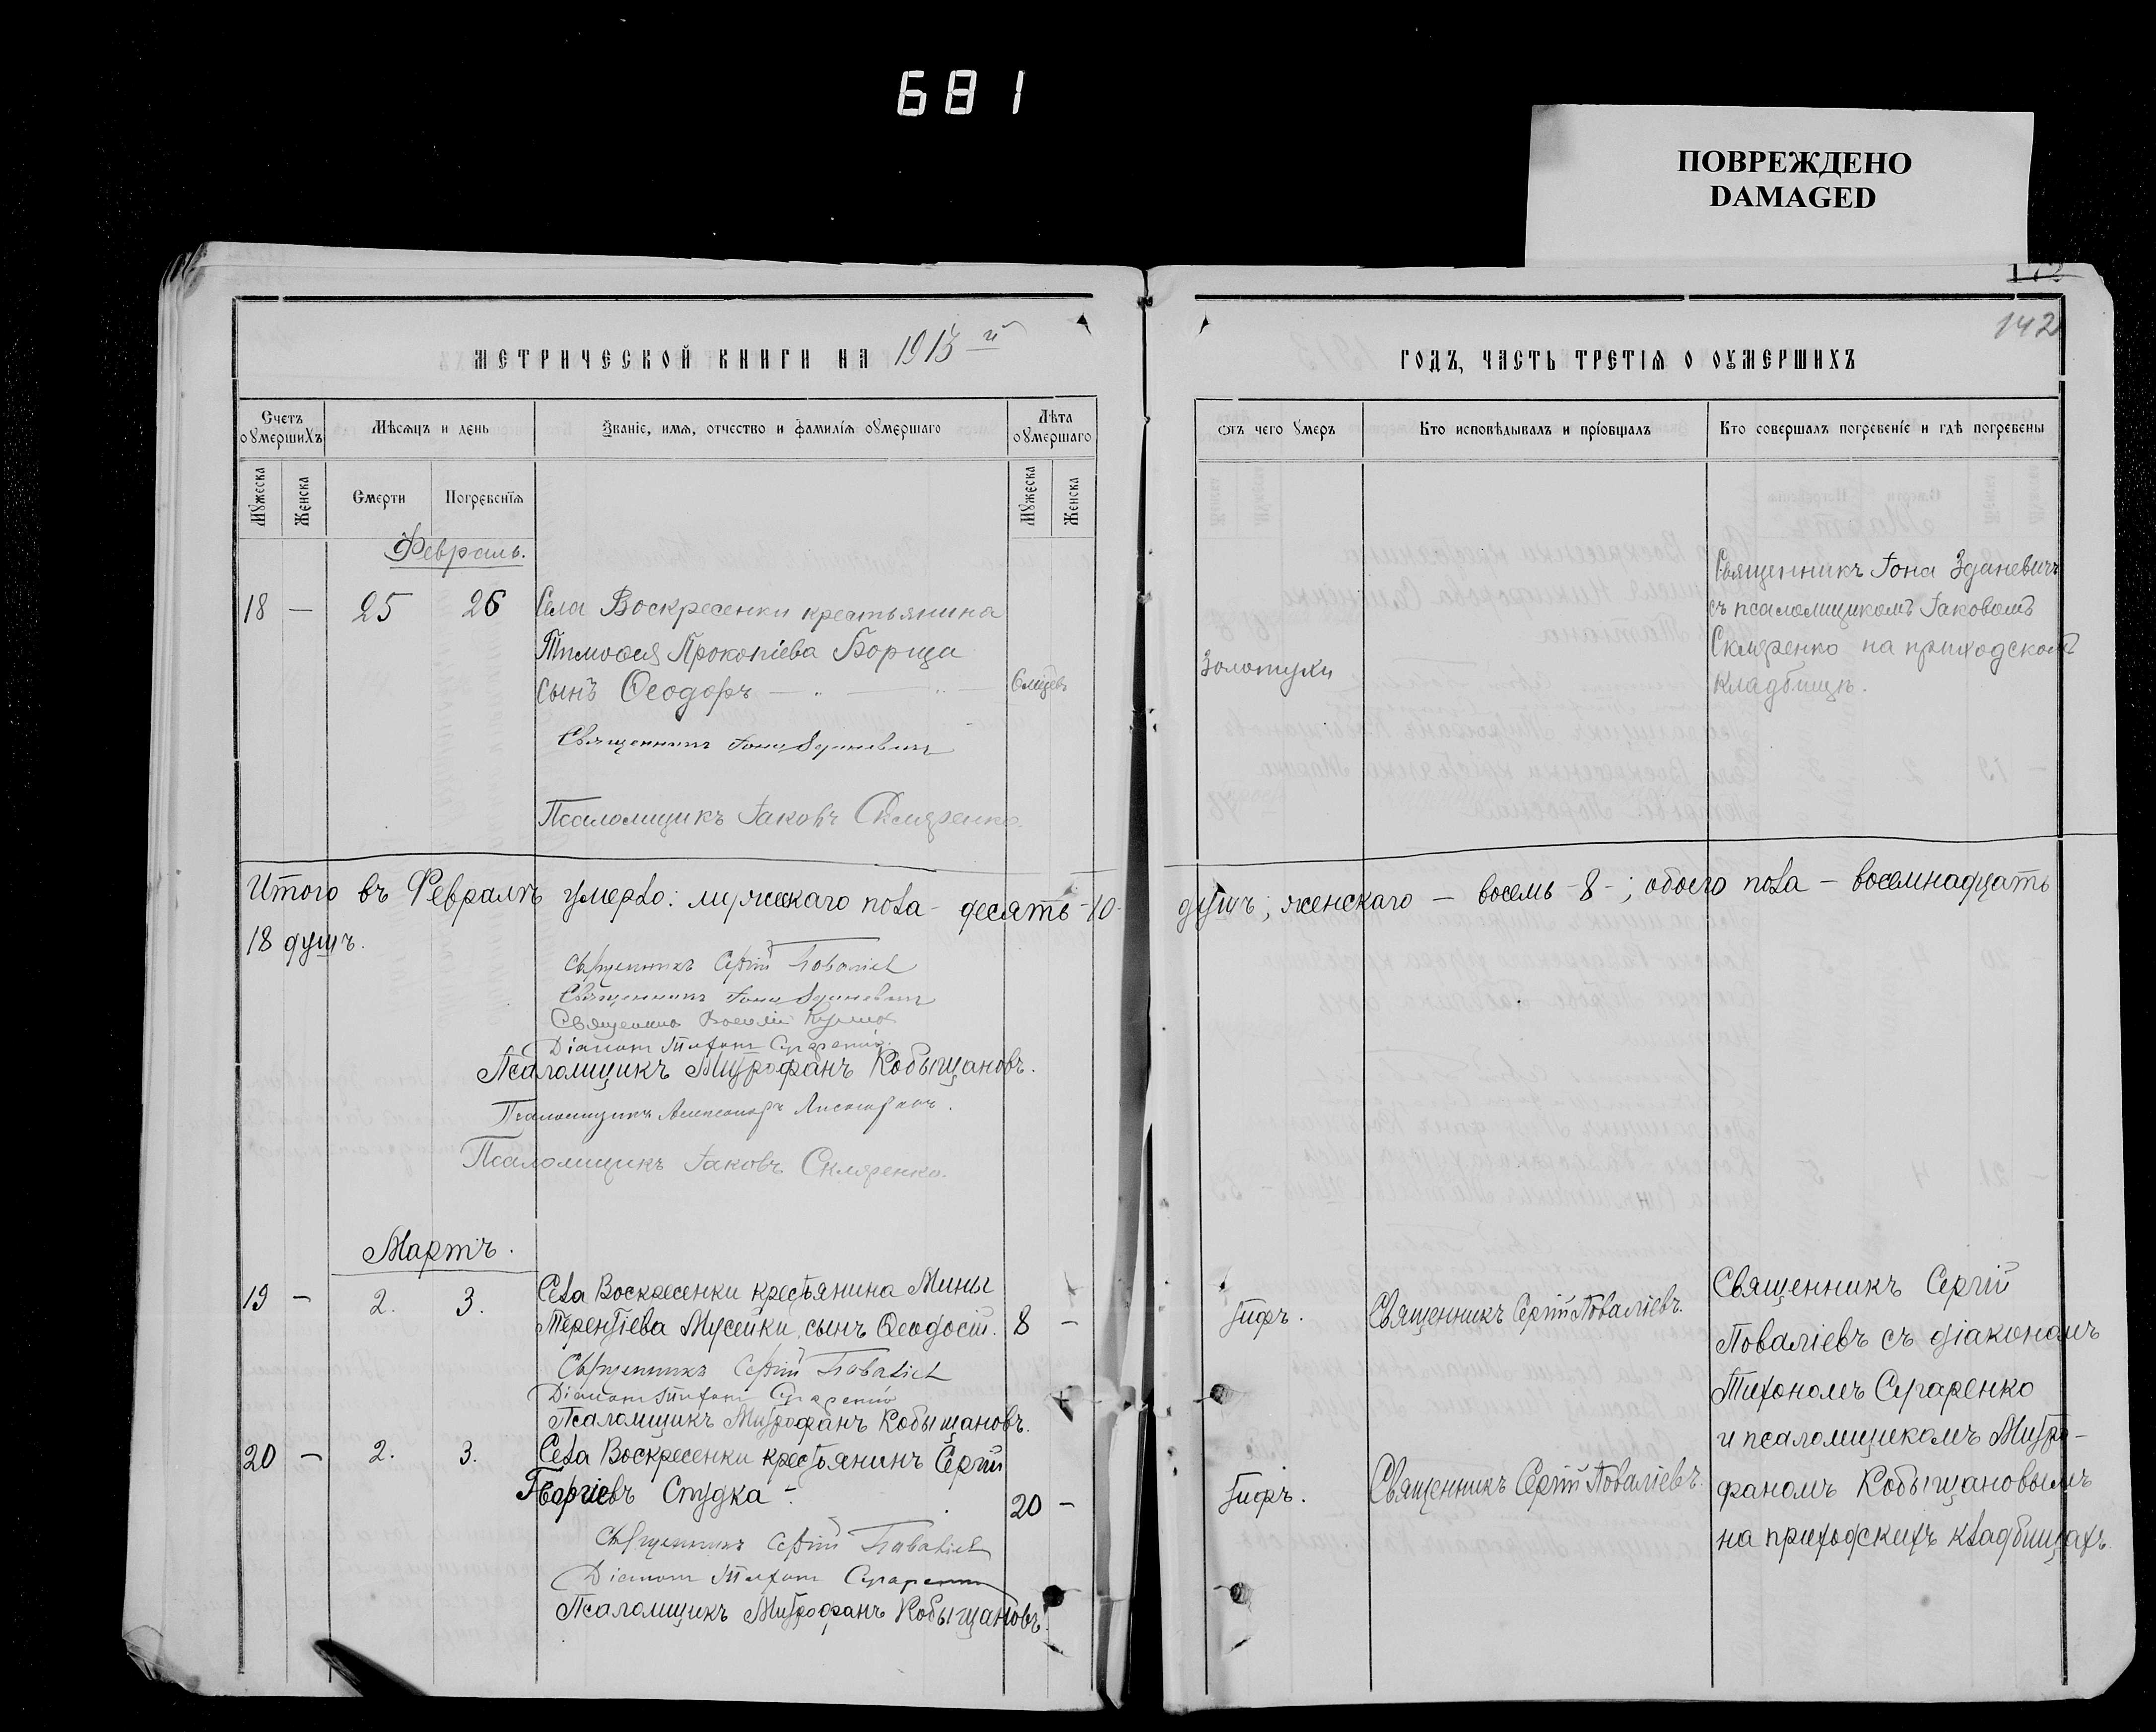 681
ПОВРЕЖДЕНО
DAMAGED
142
МЕТРИЧЕСКОЙ КНИГИ НА 1913 й
ГОДЪ, ЧАСТЬ ТРЕТІѦ О ОУМЕРШИХЪ
Счетъ оумершихъ
Мѣсяцъ и день
Званіе, имя, отчество и фамилія оумершаго
Лѣта оумершаго
Отъ чего умеръ
Кто исповѣдывалъ и пріобщалъ
Кто совершалъ погребеніе и гдѣ погребены
Мужеска
Женска
Смерти
Погребенія
Мужеска
Женска
Февраль.
18 — 25 26 Села Воскресенки крестьянина
Тимоѳея Прокопіева Борща
сынъ Ѳеодоръ
Священникъ Іона Зданевичъ
Псаломщикъ Іаковъ Скляренко.
Золотухи
Священникъ Іона Зданевичъ
съ псаломщикомъ Іаковомъ
Скляренко на приходскомъ
кладбищѣ.
Итого въ Февралѣ умерло: мужескаго пола - десять -10- душъ; женскаго — восемь -8-; обоего пола — восемнадцать
18 душъ.
Священникъ Сергій Поваліевъ
Священникъ Іона Зданевичъ
Священникъ
Діаконъ Тихонъ
Псаломщикъ Митрофанъ Кобыщановъ.
Псаломщикъ
Псаломщикъ Іаковъ Скляренко.
Мартъ.
19 — 2. 3. Села Воскресенки крестьянина Мины
Терентіева Мусейки, сынъ Ѳеодосій. 8 —
Священникъ Сергій Поваліевъ
Діаконъ Тихонъ
Псаломщикъ Митрофанъ Кобыщановъ.
Тифъ.
Священникъ Сергій Поваліевъ.
20 — 2. 3. Села Воскресенки крестьянинъ Сергій
Студка —. 20 —
Священникъ Сергій Поваліевъ
Діаконъ Тихонъ
Псаломщикъ Митрофанъ Кобыщановъ.
Тифъ.
Священникъ Сергій Поваліевъ.
Священникъ Сергій
Поваліевъ съ діакономъ
Тихономъ
и псаломщикомъ Митро-
фаномъ Кобыщановымъ
на приходскихъ кладбищахъ.